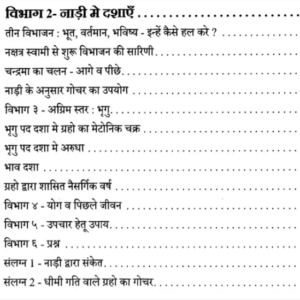 विभाग 2- नाड़ी मे दशाऐं . . . . . . . . . . . . . . . . . . . .
तीन विभाजन : भूत, वर्तमान, भविष्य - इन्हें कैसे हल करे ?
नक्षत्र स्वामी से शुरू विभाजन की सारिणी . . . . . . . . . .
चन्द्रमा का चलन - आगे व पीछे. . . . . . . . . . . . . . . .
नाड़ी के अनुसार गोचर का उपयोग . . . . . . . . . . . . . .
विभाग ३ - अग्रिम स्तर : भृगु. . . . . . . . . . . . . . . . .
भृगु पद दशा मे ग्रहो का मेटोनिक चक्र . . . . . . . . . . . .
भृगु पद दशा मे अरुधा . . . . . . . . . . . . . . . . . . . .
भाव दशा . . . . . . . . . . . . . . . . . . . . . . . . . . .
ग्रहो द्वारा शासित नैसर्गिक वर्ष . . . . . . . . . . . . . . . .
विभाग ४ - योग व पिछले जीवन . . . . . . . . . . . . . . .
विभाग ५ - उपचार हेतू उपाय. . . . . . . . . . . . . . . . .
विभाग ६ - प्रश्न . . . . . . . . . . . . . . . . . . . . . . .
संलग्न 1 - नाड़ी द्वारा संकेत. . . . . . . . . . . . . . . . . .
संलग्न 2 - धीमी गति वाले ग्रहो का गोचर. . . . . . . . . . .